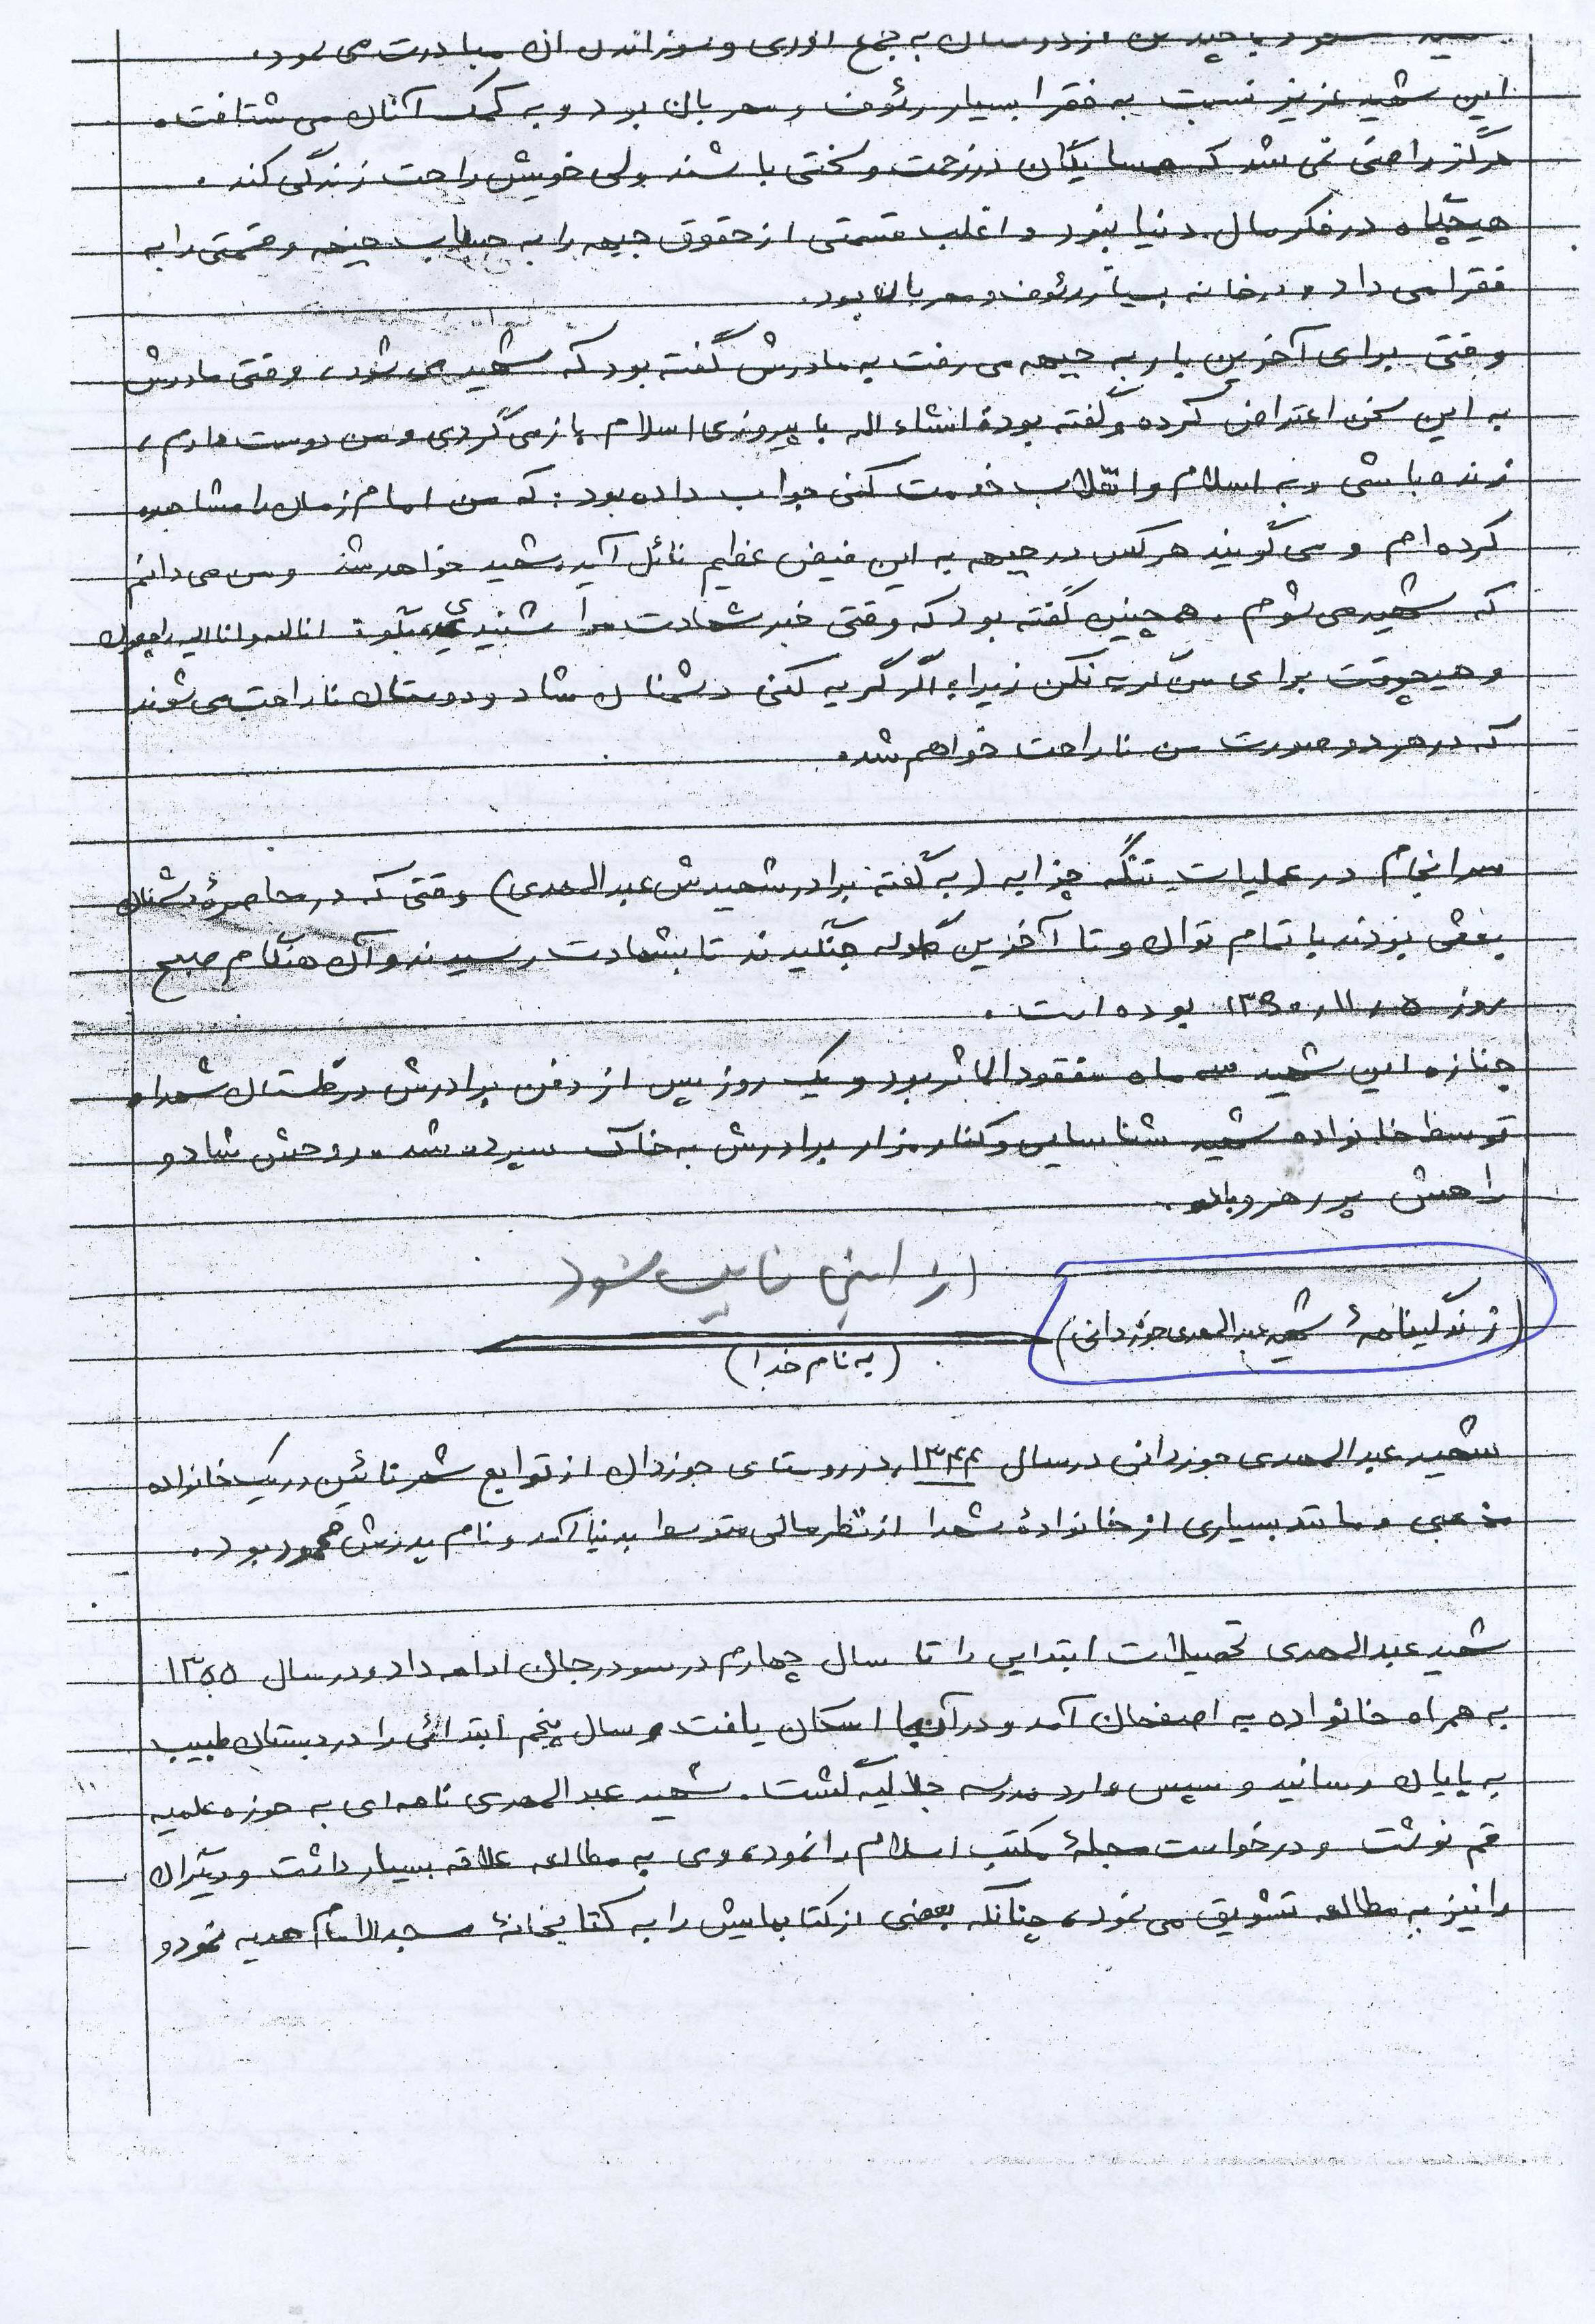 به جمع آوری و سوزاندن آن مبادرت می نمود.
این شهید عزیز نسبت به فقرا بسیار رئوف و مهربان بود و به کمک آنان می شتافت.
هرگز راضی نمی شد که همسایگان در زحمت و سختی باشند ولی خویش راحت زندگی کند.
هیچگاه در فکر مال دنیا نبود و اغلب قسمتی از حقوق جبهه را به حساب جبهه و قسمتی را به
فقرا می داد و در خانه بسیار رئوف و مهربان بود.
وقتی برای آخرین بار به جبهه می رفت به مادرش گفته بود که شهید می شود، وقتی مادرش
به این سخن اعتراض کرده و گفته بود: انشاء الله با پیروزی اسلام باز می گردی و من دوست دارم،
زنده باشی و به اسلام و انقلاب خدمت کنی جواب داده بود: که من امام زمان را مشاهده
کرده ام و می گویند هر کس در جبهه به این فیض عظیم نائل آید، شهید خواهد شد و من می دانم
که شهید می شوم. همچنین گفته بود که وقتی خبر شهادت مرا شنیدی بگو: انا لله و انا الیه راجعون
و هیچوقت برای من گریه نکن زیرا اگر گریه کنی دشمنان شاد و دوستان ناراحت می شوند
که در هر دو صورت من ناراحت خواهم شد.
سرانجام در عملیات تنگه چزابه (به گفته برادر شهیدش عبدالمهدی) وقتی که در محاصرهٔ دشمنان
بعثی بودند با تمام توان و تا آخرین گلوله جنگیدند تا بشهادت رسیدند و آن هنگام صبح
روز ۱۳۶۰٫۱۱٫۵ بوده است.
جنازه این شهید سه ماه مفقودالاثر بود و یک روز پس از دفن برادرش در گلستان شهدا،
توسط خانواده شهید شناسایی و کنار مزار برادرش به خاک سپرده شد. روحش شاد و
راهش پر رهرو باد.
تایپ شود
(زندگینامهٔ شهید عبدالمهدی جوزدانی)
(به نام خدا)
شهید عبدالمهدی جوزدانی در سال ۱۳۴۴ در روستای جوزدان از توابع شهر نائین در یک خانواده
مذهبی و مانند بسیاری از خانوادهٔ شهدا از نظر مالی متوسط بدنیا آمد و نام پدرش محمود بود.
شهید عبدالمهدی تحصیلات ابتدایی را تا سال چهارم در سودرجان ادامه داد و در سال ۱۳۵۵
به همراه خانواده به اصفهان آمد و در آنجا اسکان یافت و سال پنجم ابتدائی را در دبستان طبیب
به پایان رسانید و سپس وارد مدرسه جلالیه گشت. شهید عبدالمهدی نامه ای به حوزه علمیه
قم نوشت و درخواست مجلهٔ مکتب اسلام را نمود، وی به مطالعه علاقه بسیار داشت و دیگران
را نیز به مطالعه تشویق می نمود، چنانکه بعضی از کتابهایش را به کتابخانهٔ مسجد الامام هدیه نمود و